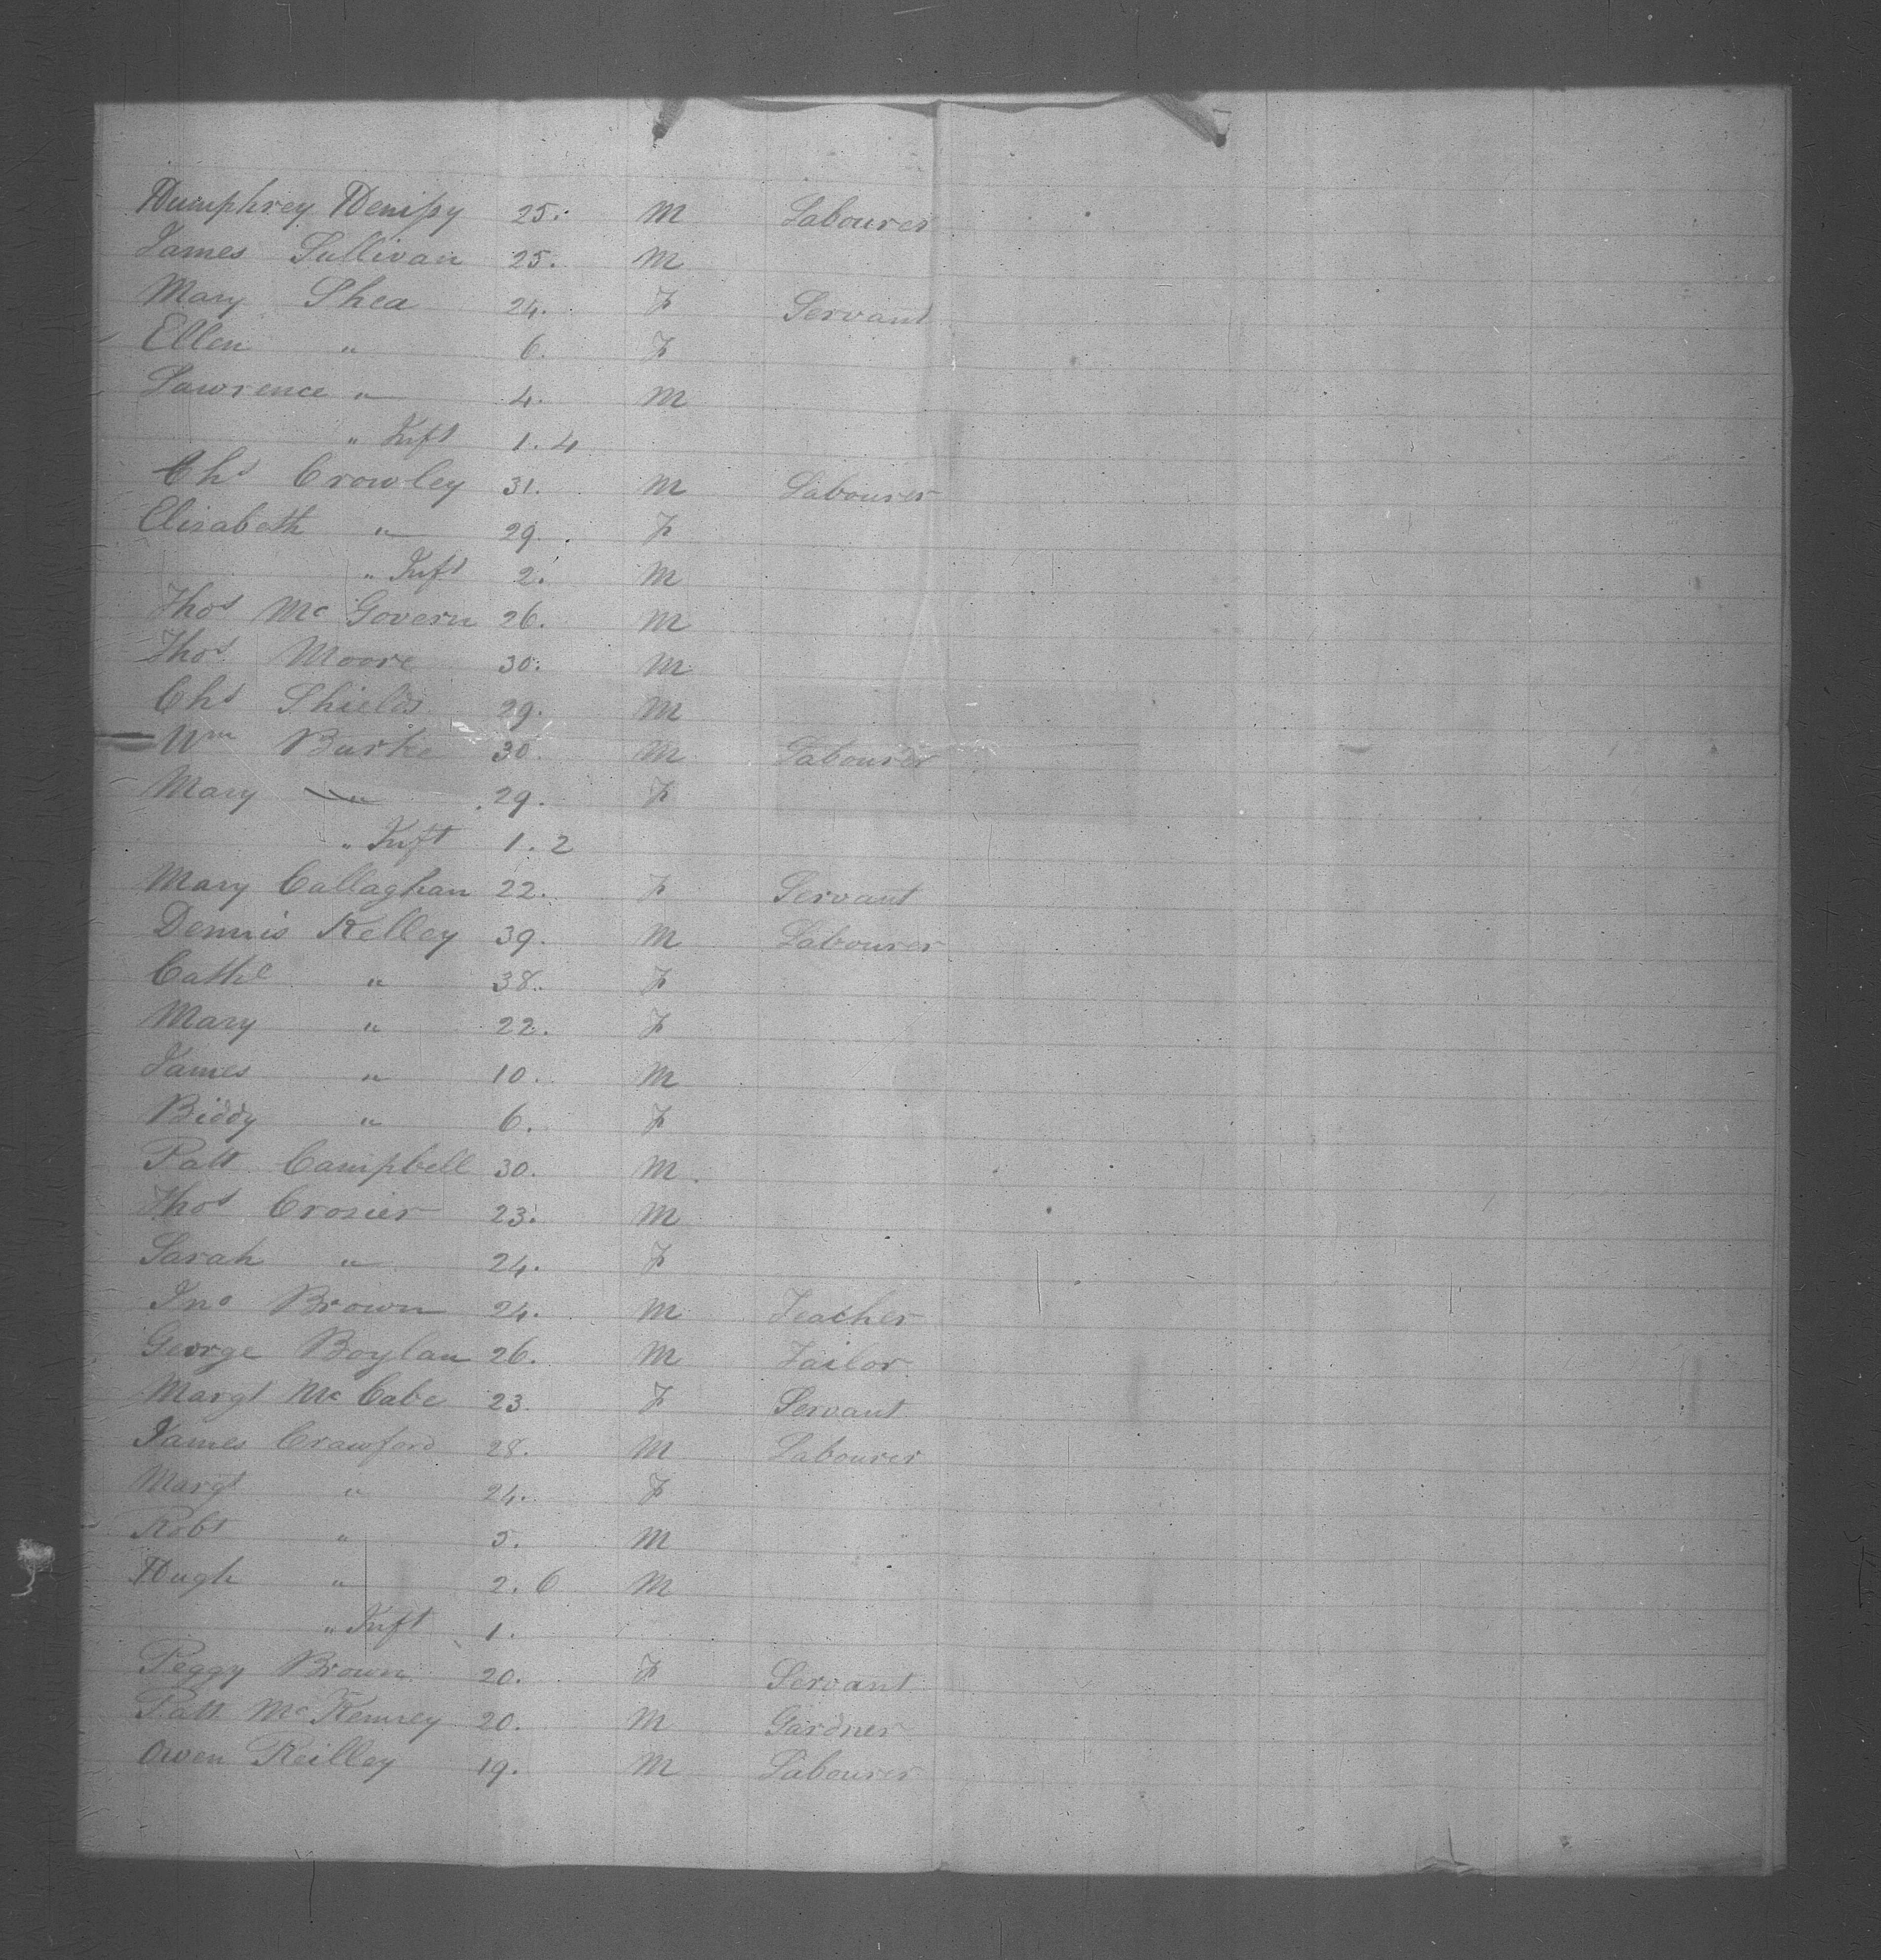 Humphrey Henissy 25. M Labourer
James Sullivan 25. M
Mary Shea 24. F Servant
Ellen " 6. F
Lawrence " 4. M
" Inft 1.4
Chs Crowley 31. M Labourer
Elisabeth " 29. F
" Inft 2. M
Thos McGovern 26. M
Thos Moore 30. M
Chs Shields 29. M
Wm Burke 30. M Labourer
Mary " 29. F
" Inft 1.2
Mary Callaghan 22. F Servant
Dennis Kelley 39. M Labourer
Cathe " 38. F
Mary " 22. F
James " 10. M
Biddy " 6. F
Patt Campbell 30. M
Thos Crozier 23. M
Sarah " 24. F
Jno Brown 24. M Teacher
George Boylan 26. M Tailor
Margt McCabe 23. F Servant
James Crawford 28. M Labourer
Margt " 24. F
Robt " 5. M
Hugh " 2.6 M
" Inft 1.
Peggy Brown 20. F Servant
Patt McKenney 20. M Gardner
Owen Reilley 19. M Labourer